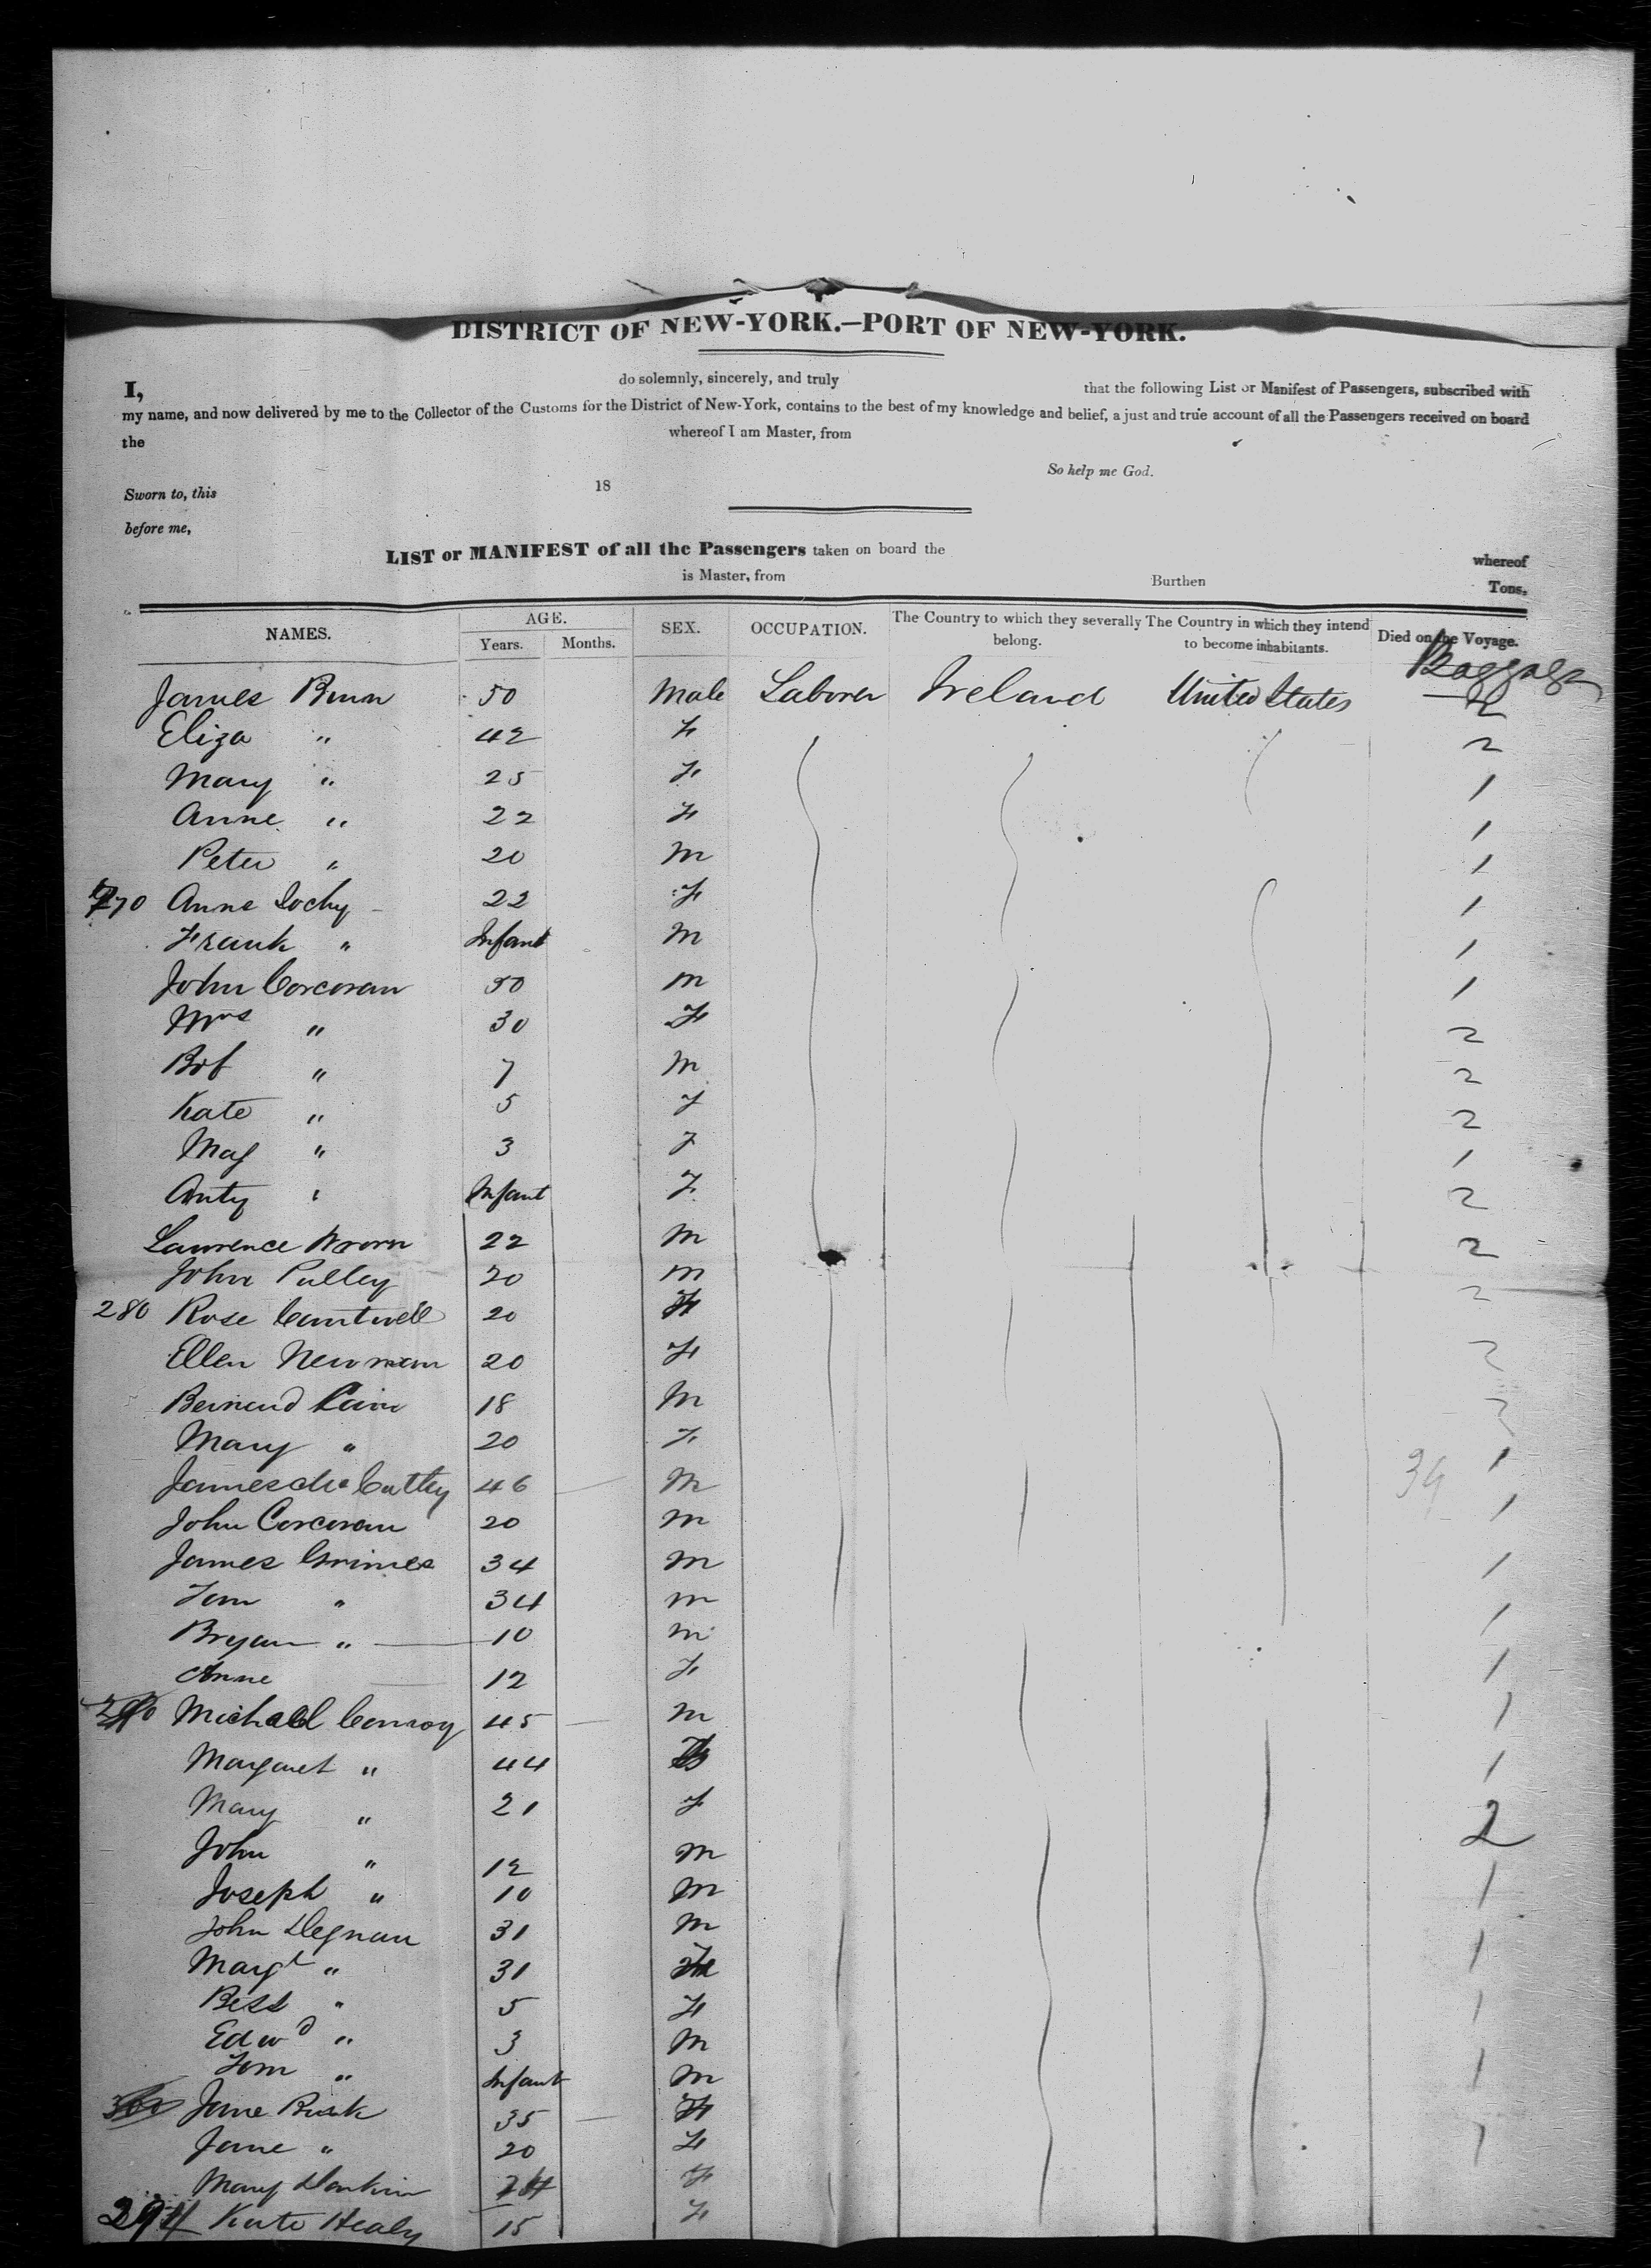 DISTRICT OF NEW-YORK.—PORT OF NEW-YORK.
I, do solemnly, sincerely, and truly that the following List or Manifest of Passengers, subscribed with
my name, and now delivered by me to the Collector of the Customs for the District of New-York, contains to the best of my knowledge and belief, a just and true account of all the Passengers received on board
the whereof I am Master, from
So help me God.
Sworn to, this 18
before me,
LIST or MANIFEST of all the Passengers taken on board the whereof
is Master, from Burthen Tons,
NAMES. AGE. Years. Months. SEX. OCCUPATION. The Country to which they severally belong. The Country in which they intend to become inhabitants. Died on the Voyage.
Baggage
James 50 Male Laborer Ireland United States 2
Eliza " 42 F 2
Mary " 25 F 1
Anne " 22 F 1
Peter " 20 M 1
270 Anne 22 F 1
Frank " Infant M 1
John Corcoran 30 M 1
Mrs " 30 F 2
Bob " 7 M 2
Kate " 5 F 2
Mag " 3 F 1
" Infant F 2
Lawrence 22 M 2
John Pulley 20 M 2
280 Rose Cantwell 20 F
Ellen Newman 20 F 2
Bernard Cain 18 M 2
Mary " 20 F 1
James 46 M 34 1
John Corcoran 20 M
James Grimes 34 M 1
Tom " 34 M 1
Bryan " 10 M
Anne 12 F 1
290 Michael Conroy 45 M 1
Margaret " 44 F 1
Mary " 21 F 2
John " 12 M
Joseph " 10 M 1
John Degnan 31 M
Margt " 31 F 1
Bess " 5 F 1
Edwd " 3 M
Tom " Infant M 1
300 Jane 35 F
Jane " 20 F 1
Mary 24 F
294 Kate Healy 15 F